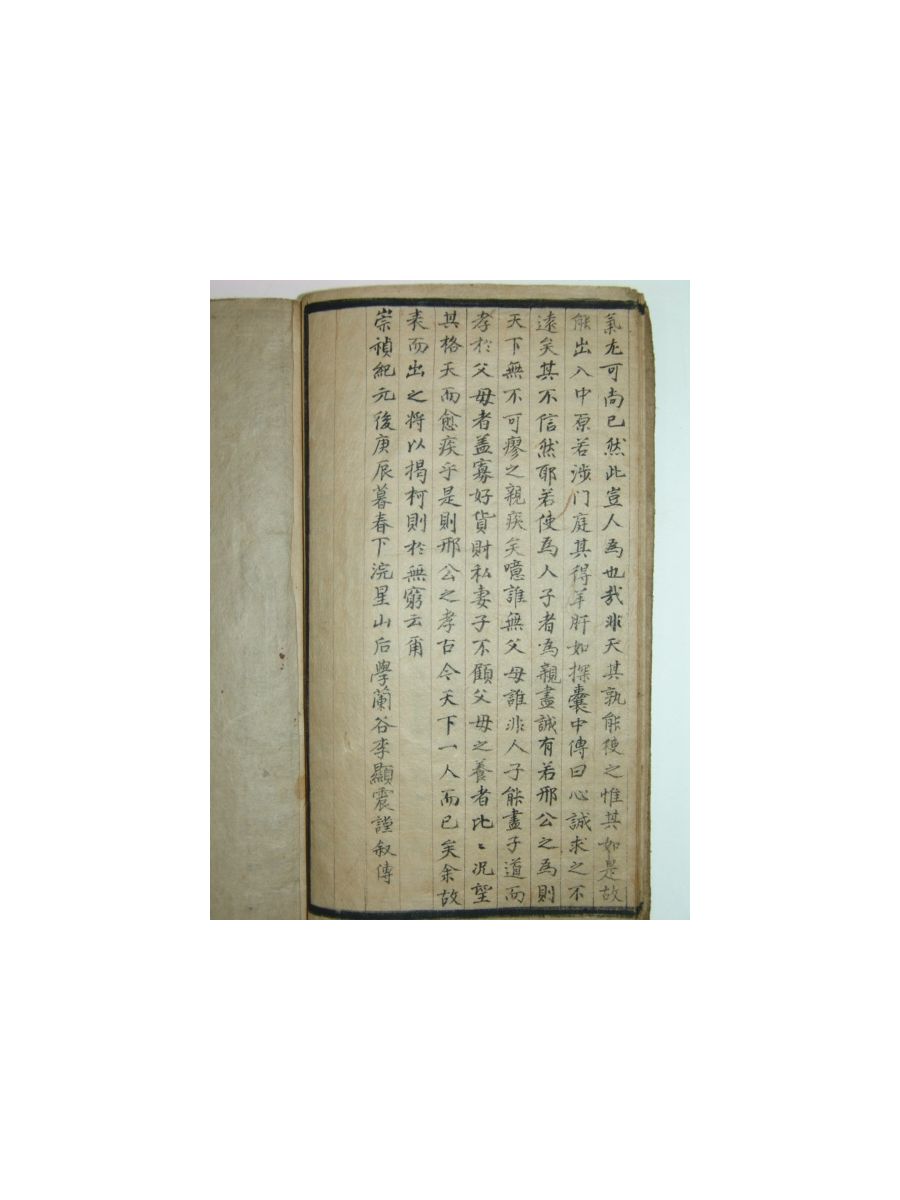 氣尤可尚已然此豈人為也哉非天其孰能使之惟其如是故
能出入中原若涉门庭其得羊肝如探囊中傳曰心誠求之不
遠矣其不信然耶若使為人子者為親盡誠有若邢公之為則
天下無不可瘳之親疾矣噫誰無父母誰非人子能盡子道而
孝於父母者盖寡好貨財私妻子不顧父母之養者比〻況望
其格天而愈疾乎是則邢公之孝古今天下一人而已矣余故
表而出之将以揭柯則於無窮云甭
崇禎紀元後庚辰暮春下浣星山后學蘭谷李顯震謹叙傳